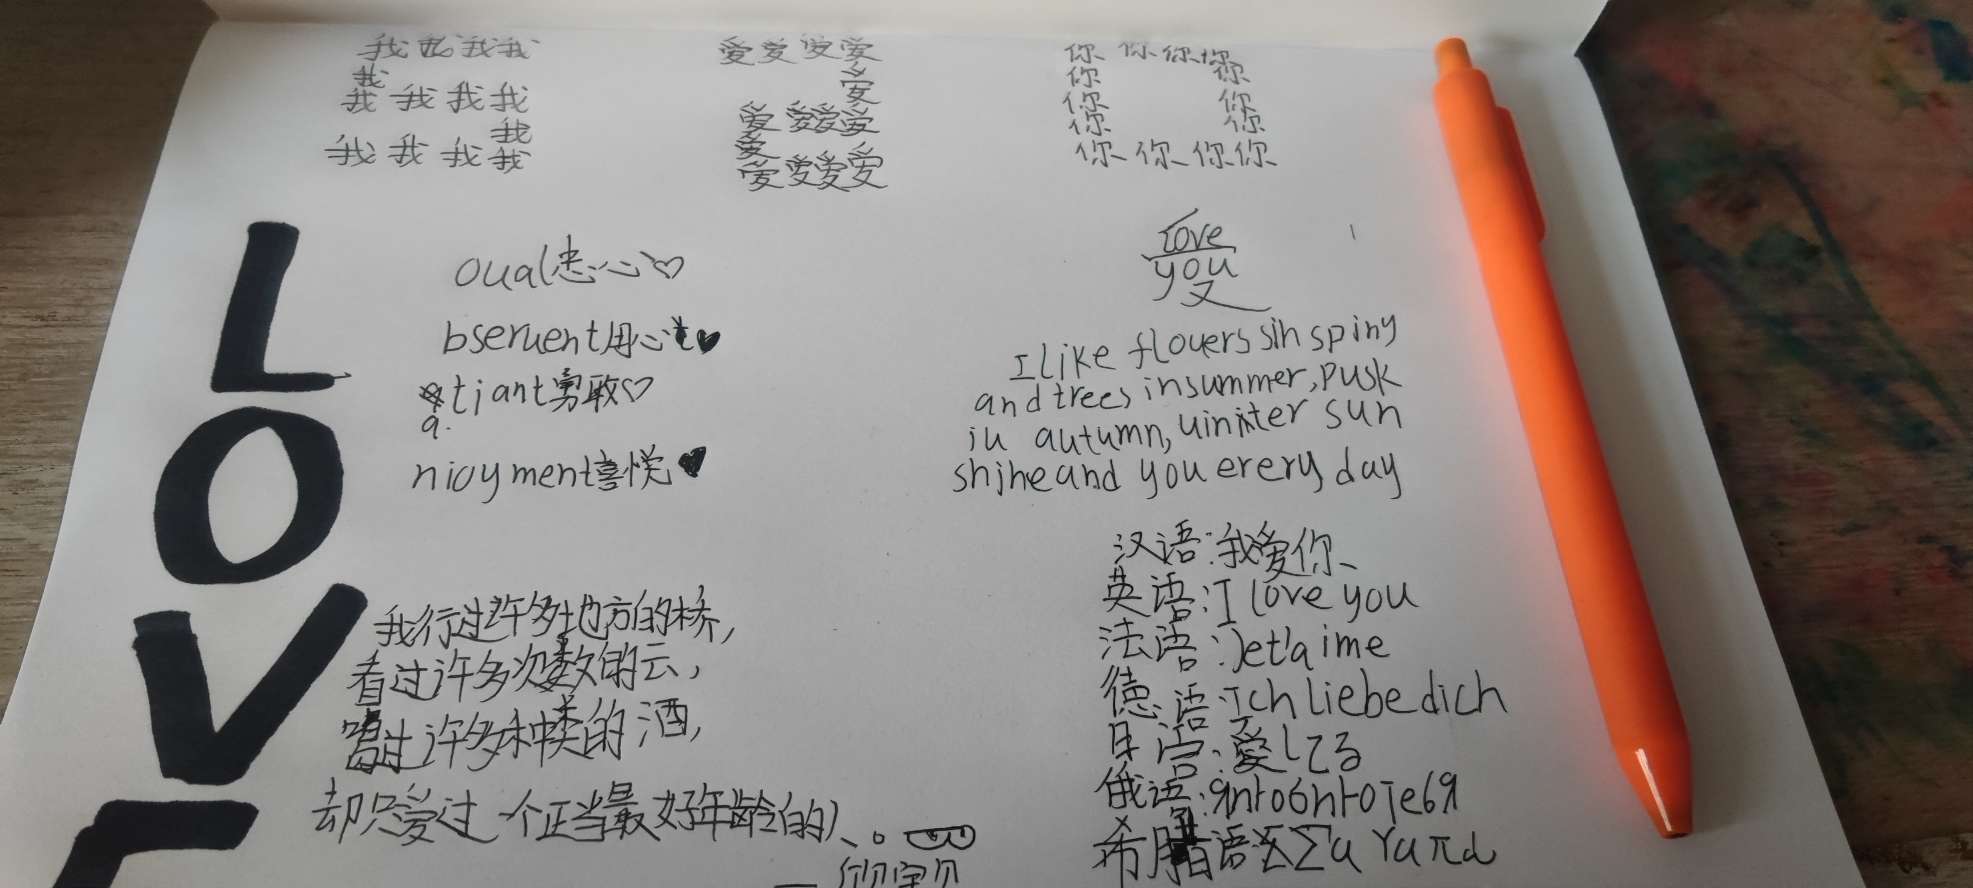 我我我我 爱爱爱爱 你你你你
我 爱 你 你
我我我我 爱爱爱爱 你 你
我 爱 你 你
我我我我 爱爱爱爱 你你你你
L
O
V
oual忠心♡
bseruent用心♥
tiant勇敢♡
a.
nioyment喜悦♥
love
you
又
I like flouerssihspiny
andtrees insummer,pusk
iu autumn,uiniter sun
shineand you erery day
我行过许多地方的桥,
看过许多次数的云,
喝过许多种类的酒,
却只爱过一个正当最好年龄的人。
汉语:我爱你、
英语:I love you
法语:Jet'aime
德语:Ichliebedich
日语:爱してる
俄语:
希腊语